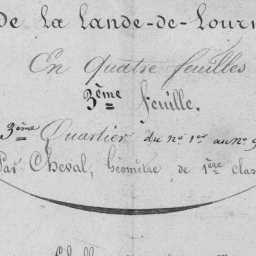 De la Lande-de-Lour
En Quatre feuilles
3ème feuille.
3ème Quartier du no 1er au no 9
Par Cheval, Géomètre de 1ère clas